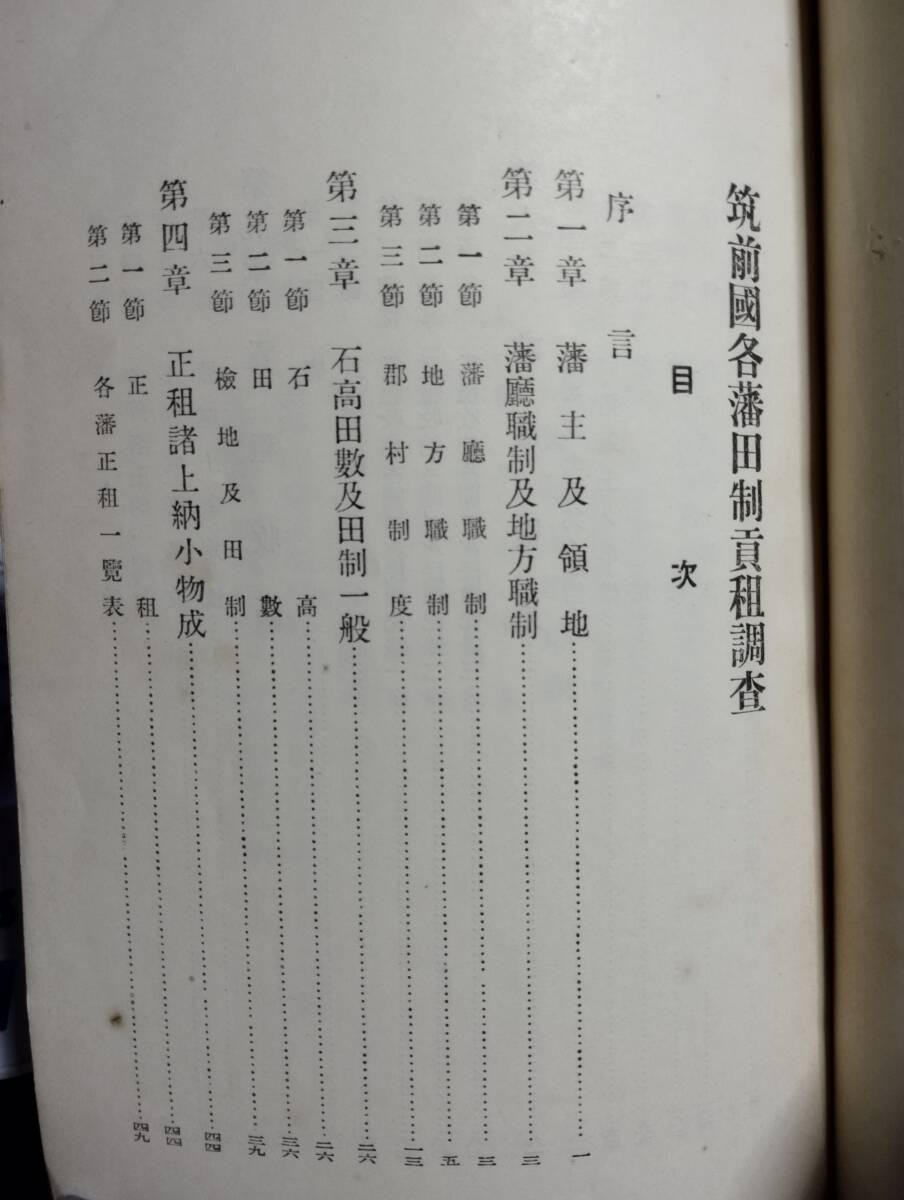 筑前國各藩田制貢租調査
目次
序言
第一章 藩主及領地……一
第二章 藩廳職制及地方職制……三
第一節 藩廳職制……三
第二節 地方職制……五
第三節 郡村制度……一三
第三章 石高田數及田制一般……二六
第一節 石高……二六
第二節 田數……三六
第三節 檢地及田制……三九
第四章 正租諸上納小物成……四四
第一節 正租……四四
第二節 各藩正租一覽表……四九